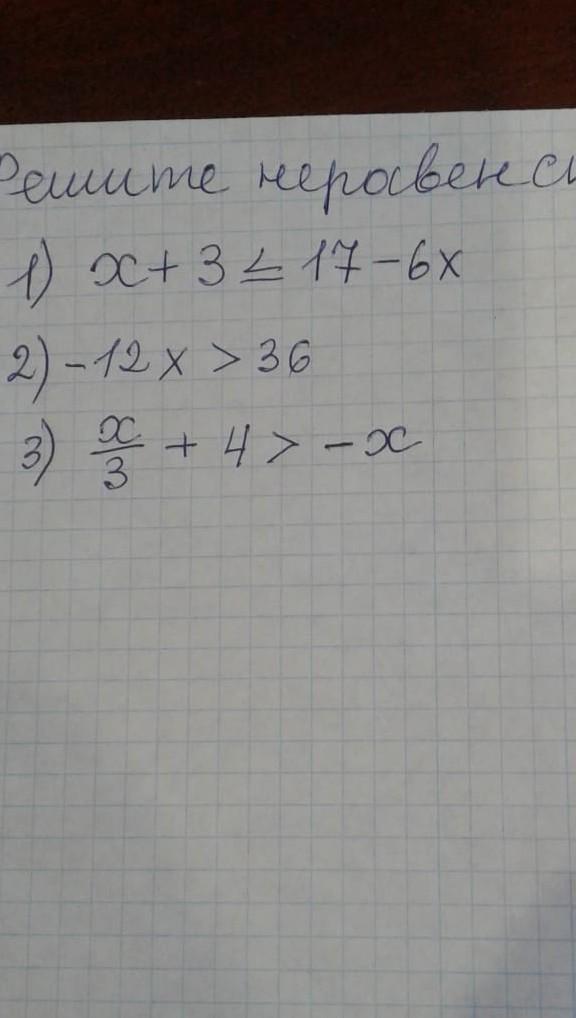 Решите неравенс
1) x + 3 ≤ 17 - 6x
2) -12x > 36
3) x/3 + 4 > -x